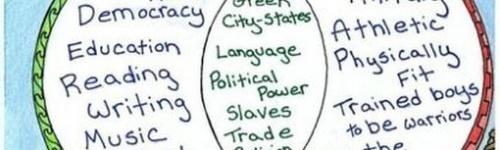 Democracy
Education
Reading
Writing
Music
Greek
City-States
Language
Political
Power
Slaves
Trade
Athletic
Physically
Fit
Trained boys
to be warriors
the